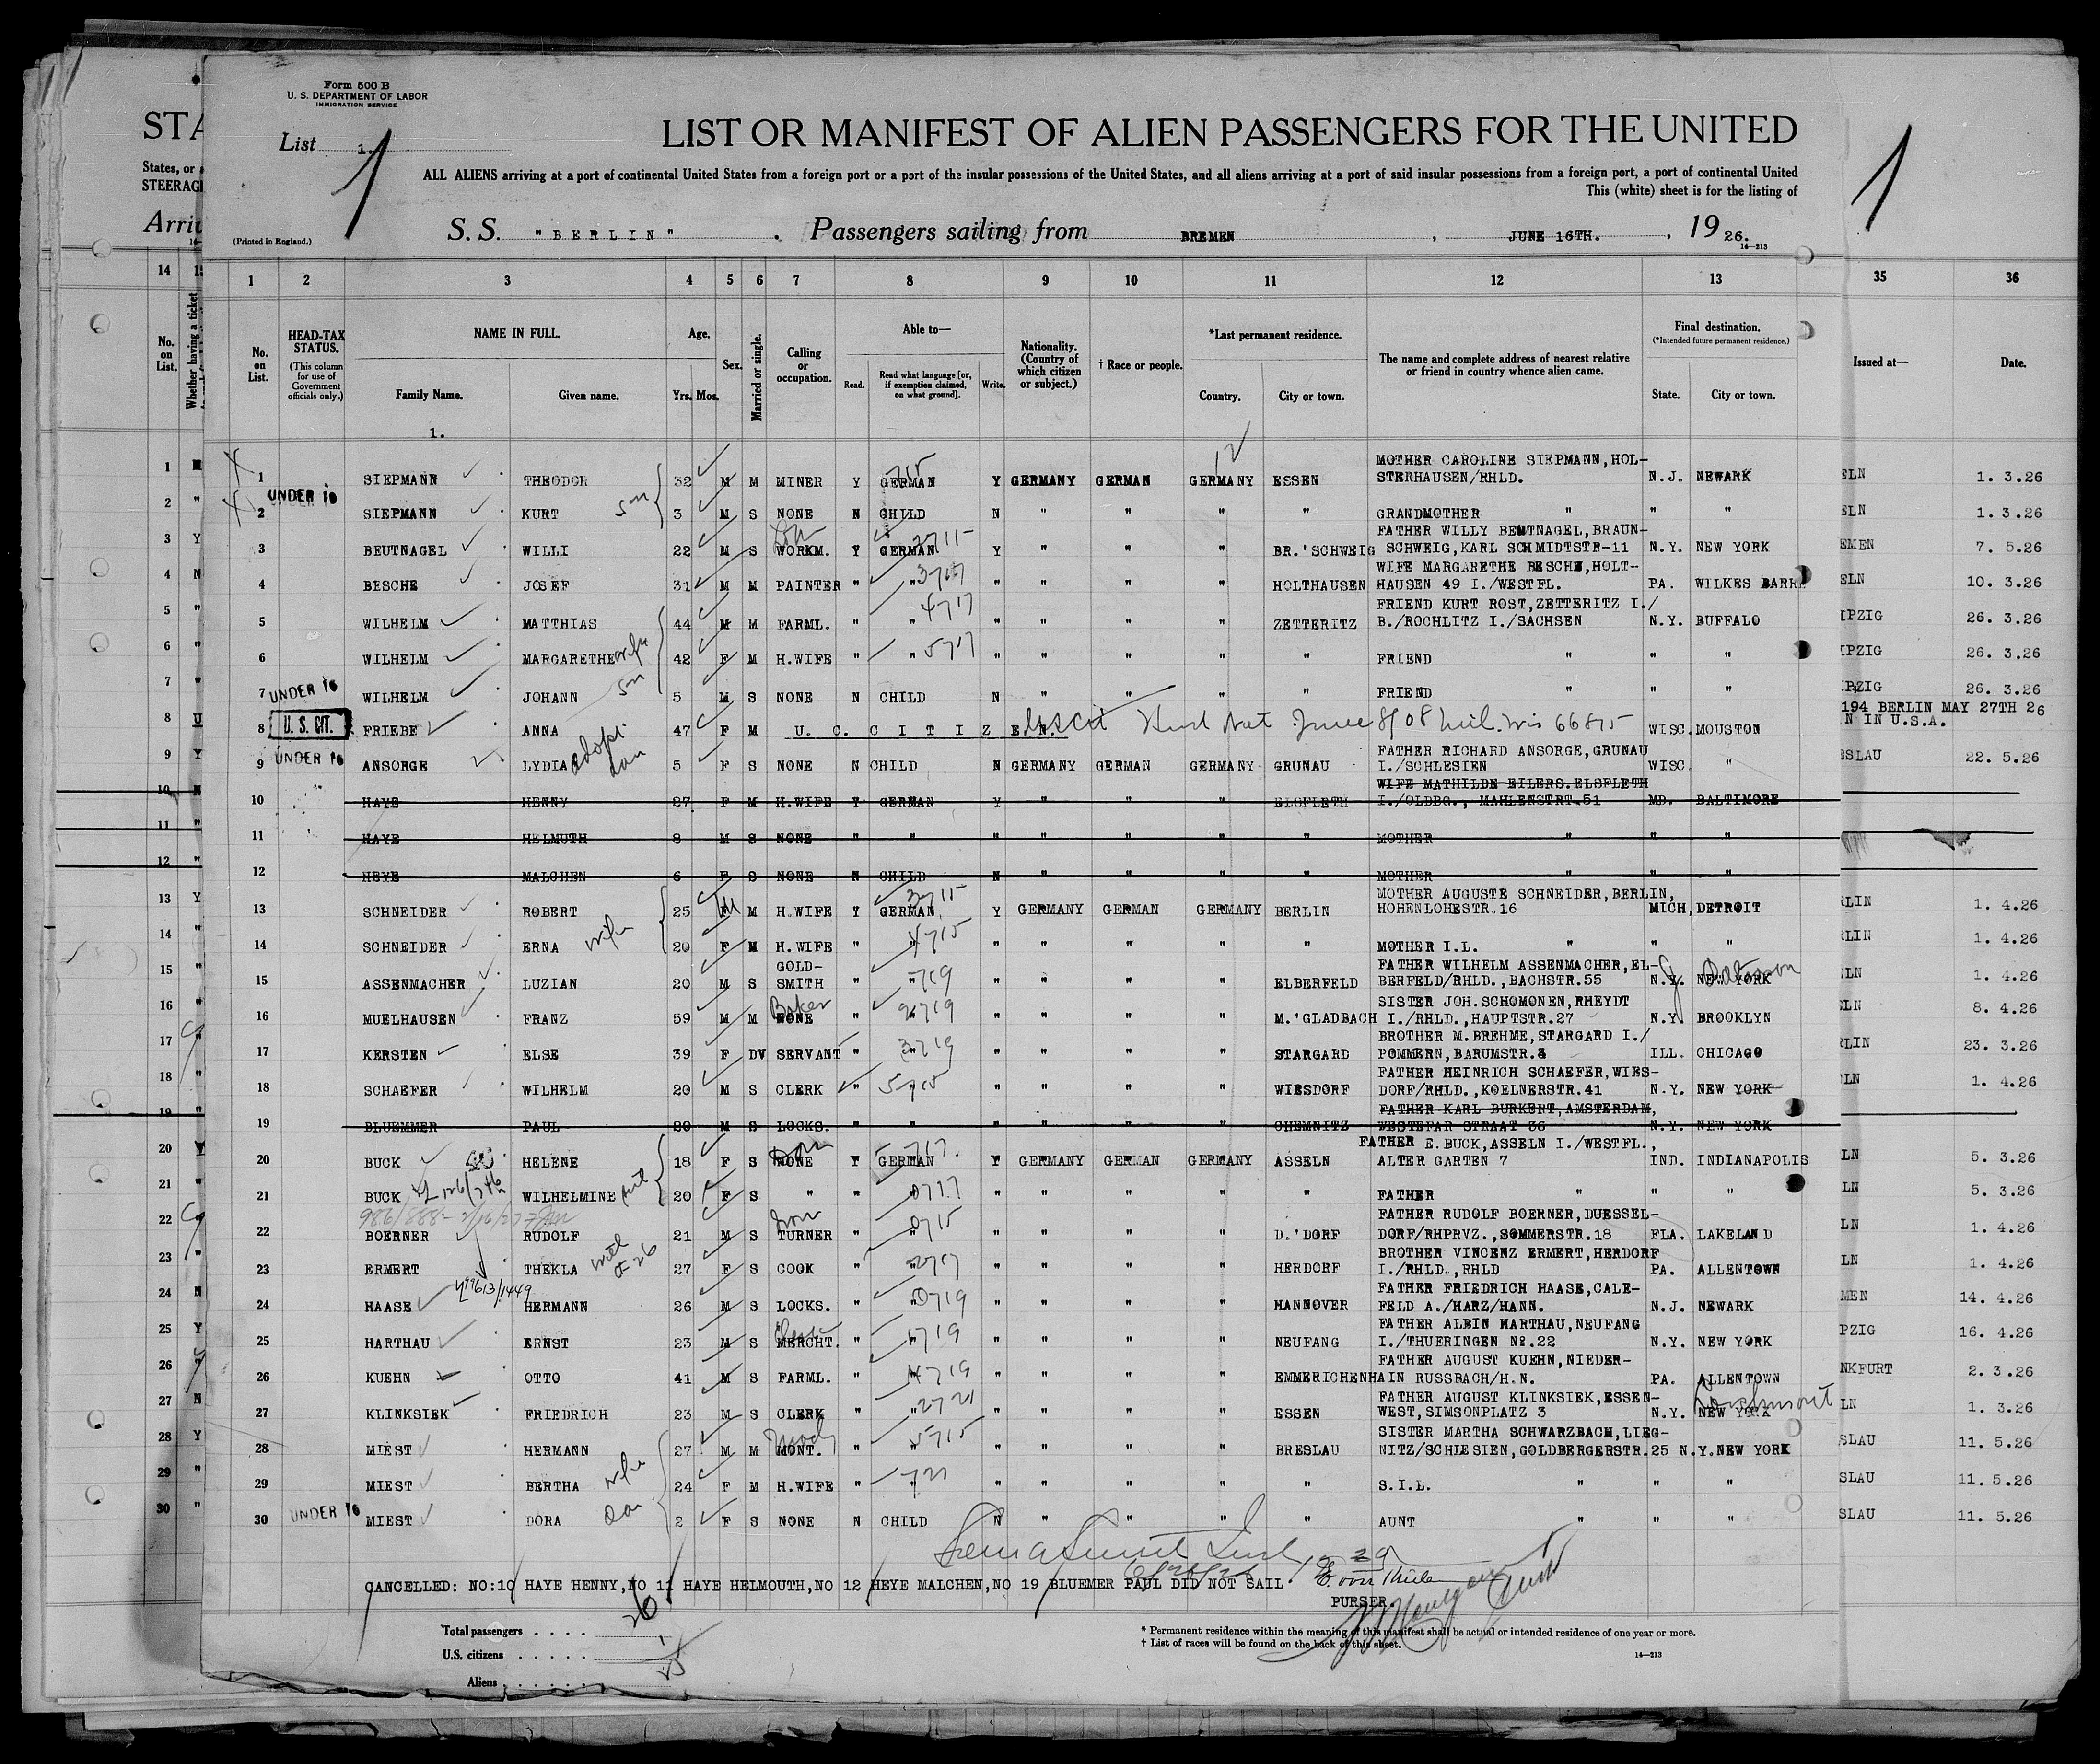 Form 500 B
U. S. DEPARTMENT OF LABOR
IMMIGRATION SERVICE
List 1.
1
LIST OR MANIFEST OF ALIEN PASSENGERS FOR THE UNITED
ALL ALIENS arriving at a port of continental United States from a foreign port or a port of the insular possessions of the United States, and all aliens arriving at a port of said insular possessions from a foreign port, a port of continental United
This (white) sheet is for the listing of
(Printed in England.)
S. S. "BERLIN" . Passengers sailing from BREMEN , JUNE 16TH. , 19 26.
14—213
1 2 3 4 5 6 7 8 9 10 11 12 13
No. on List.
HEAD-TAX STATUS.
(This column for use of Government officials only.)
NAME IN FULL.
Family Name. Given name.
Age.
Yrs. Mos.
Sex.
Married or single.
Calling or occupation.
Able to—
Read. Read what language [or, if exemption claimed, on what ground]. Write.
Nationality. (Country of which citizen or subject.)
† Race or people.
*Last permanent residence.
Country. City or town.
The name and complete address of nearest relative or friend in country whence alien came.
Final destination.
(*Intended future permanent residence.)
State. City or town.
1.
MOTHER CAROLINE SIEPMANN, HOL-
1 SIEPMANN THEODOR 32 M M MINER Y GERMAN Y GERMANY GERMAN GERMANY ESSEN STERHAUSEN/RHLD. N.J. NEWARK
UNDER 16
2 SIEPMANN KURT son 3 M S NONE N CHILD N " " " " GRANDMOTHER " " "
FATHER WILLY BEUTNAGEL, BRAUN-
3 BEUTNAGEL WILLI 22 M S WORKM. Y GERMAN Y " " " BR.'SCHWEIG SCHWEIG, KARL SCHMIDTSTR-11 N.Y. NEW YORK
WIFE MARGARETHE BESCHE, HOLT-
4 BESCHE JOSEF 31 M M PAINTER " " " " " " HOLTHAUSEN HAUSEN 49 I./WESTFL. PA. WILKES BARRE
FRIEND KURT ROST, ZETTERITZ I./
5 WILHELM MATTHIAS 44 M M FARML. " " " " " " ZETTERITZ B./ROCHLITZ I./SACHSEN N.Y. BUFFALO
6 WILHELM MARGARETHE wife 42 F M H.WIFE " " " " " " " FRIEND " " "
7 UNDER 16 WILHELM JOHANN son 5 M S NONE N CHILD N " " " " FRIEND " " "
8 U. S. CIT. FRIEBE ANNA 47 F M U. C. C I T I Z E N. US Cit Husb Nat June 8/08 Mil. Wis 66815 WISC. MOUSTON
UNDER 16 FATHER RICHARD ANSORGE, GRUNAU
9 ANSORGE LYDIA adopt dau 5 F S NONE N CHILD N GERMANY GERMAN GERMANY GRUNAU I./SCHLESIEN WISC. "
WIFE MATHILDE EILERS. ELSFLETH
10 HAYE HENNY 27 F M H.WIFE Y GERMAN Y " " " ELSFLETH I./OLDBG., MAHLENSTRT.51 MD. BALTIMORE
11 HAYE HELMUTH 8 M S NONE " " " " " " " MOTHER " " "
12 HEYE MALCHEN 6 F S NONE N CHILD N " " " " MOTHER " " "
MOTHER AUGUSTE SCHNEIDER, BERLIN,
13 SCHNEIDER ROBERT 25 M M H.WIFE Y GERMAN Y GERMANY GERMAN GERMANY BERLIN HOHENLOHESTR.16 MICH, DETROIT
14 SCHNEIDER ERNA wife 20 F M H.WIFE " " " " " " " MOTHER I.L. " " "
GOLD- FATHER WILHELM ASSENMACHER, EL-
15 ASSENMACHER LUZIAN 20 M S SMITH " " " " " " ELBERFELD BERFELD/RHLD., BACHSTR.55 N.Y. NEW YORK J Paterson
Baker SISTER JOH. SCHOMONEN, RHEYDT
16 MUELHAUSEN FRANZ 59 M M NONE " " " " " " M.'GLADBACH I./RHLD., HAUPTSTR.27 N.Y. BROOKLYN
BROTHER M. BREHME, STARGARD I./
17 KERSTEN ELSE 39 F DV SERVANT " " " " " " STARGARD POMMERN, BARUMSTR.4 ILL. CHICAGO
FATHER HEINRICH SCHAEFER, WIES-
18 SCHAEFER WILHELM 20 M S CLERK " " " " " " WIESDORF DORF/RHLD., KOELNERSTR.41 N.Y. NEW YORK
FATHER KARL BURKERT, AMSTERDAM,
19 BLUEMMER PAUL 20 M S LOCKS. " " " " " " CHEMNITZ WESTEFAR STRAAT 36 N.Y. NEW YORK
FATHER E. BUCK, ASSELN I./WESTFL.,
20 BUCK HELENE 18 F S NONE Y GERMAN Y GERMANY GERMAN GERMANY ASSELN ALTER GARTEN 7 IND. INDIANAPOLIS
21 BUCK WILHELMINE 20 F S " " " " " " " " FATHER " " "
FATHER RUDOLF BOERNER, DUESSEL-
22 BOERNER RUDOLF 21 M S TURNER " " " " " " D.'DORF DORF/RHPRVZ., SOMMERSTR.18 FLA. LAKELAND
BROTHER VINCENZ ERMERT, HERDORF
23 ERMERT THEKLA with 27 F S COOK " " " " " " HERDORF I./RHLD., RHLD PA. ALLENTOWN
FATHER FRIEDRICH HAASE, CALE-
24 HAASE HERMANN 26 M S LOCKS. " " " " " " HANNOVER FELD A./HARZ/HANN. N.J. NEWARK
FATHER ALBIN HARTHAU, NEUFANG
25 HARTHAU ERNST 23 M S MERCHT. " " " " " " NEUFANG I./THUERINGEN No.22 N.Y. NEW YORK
FATHER AUGUST KUEHN, NIEDER-
26 KUEHN OTTO 41 M S FARML. " " " " " " EMMERICHENHAIN RUSSBACH/H.N. PA. ALLENTOWN
FATHER AUGUST KLINKSIEK, ESSEN-
27 KLINKSIEK FRIEDRICH 23 M S CLERK " " " " " " ESSEN WEST, SIMSONPLATZ 3 N.Y. NEW YORK
SISTER MARTHA SCHWARZBACH, LIEG-
28 MIEST HERMANN 27 M M MONT. " " " " " " BRESLAU NITZ/SCHLESIEN, GOLDBERGERSTR.25 N.Y. NEW YORK
29 MIEST BERTHA wife 24 F M H.WIFE " " " " " " " S.I.L. " " "
30 UNDER 16 MIEST DORA dau 2 F S NONE N CHILD N " " " " AUNT " " "
CANCELLED: NO:10 HAYE HENNY, NO 11 HAYE HELMOUTH, NO 12 HEYE MALCHEN, NO 19 BLUEMER PAUL DID NOT SAIL.
PURSER.
Total passengers . . . . 26
U.S. citizens . . . . . 1
Aliens . . . . . . 25
* Permanent residence within the meaning of this manifest shall be actual or intended residence of one year or more.
† List of races will be found on the back of this sheet.
14—213
STA
States, or
STEERAG
Arriv
14
No. on List.
Whether having a ticket
1
35 36
Issued at— Date.
ELN 1. 3.26
ELN 1. 3.26
EMEN 7. 5.26
ELN 10. 3.26
IPZIG 26. 3.26
IPZIG 26. 3.26
IPZIG 26. 3.26
194 BERLIN MAY 27TH 26
N IN U.S.A.
SLAU 22. 5.26
RLIN 1. 4.26
RLIN 1. 4.26
LN 1. 4.26
LN 8. 4.26
RLIN 23. 3.26
LN 1. 4.26
LN 5. 3.26
LN 5. 3.26
LN 1. 4.26
LN 1. 4.26
MEN 14. 4.26
PZIG 16. 4.26
NKFURT 2. 3.26
LN 1. 3.26
SLAU 11. 5.26
SLAU 11. 5.26
SLAU 11. 5.26